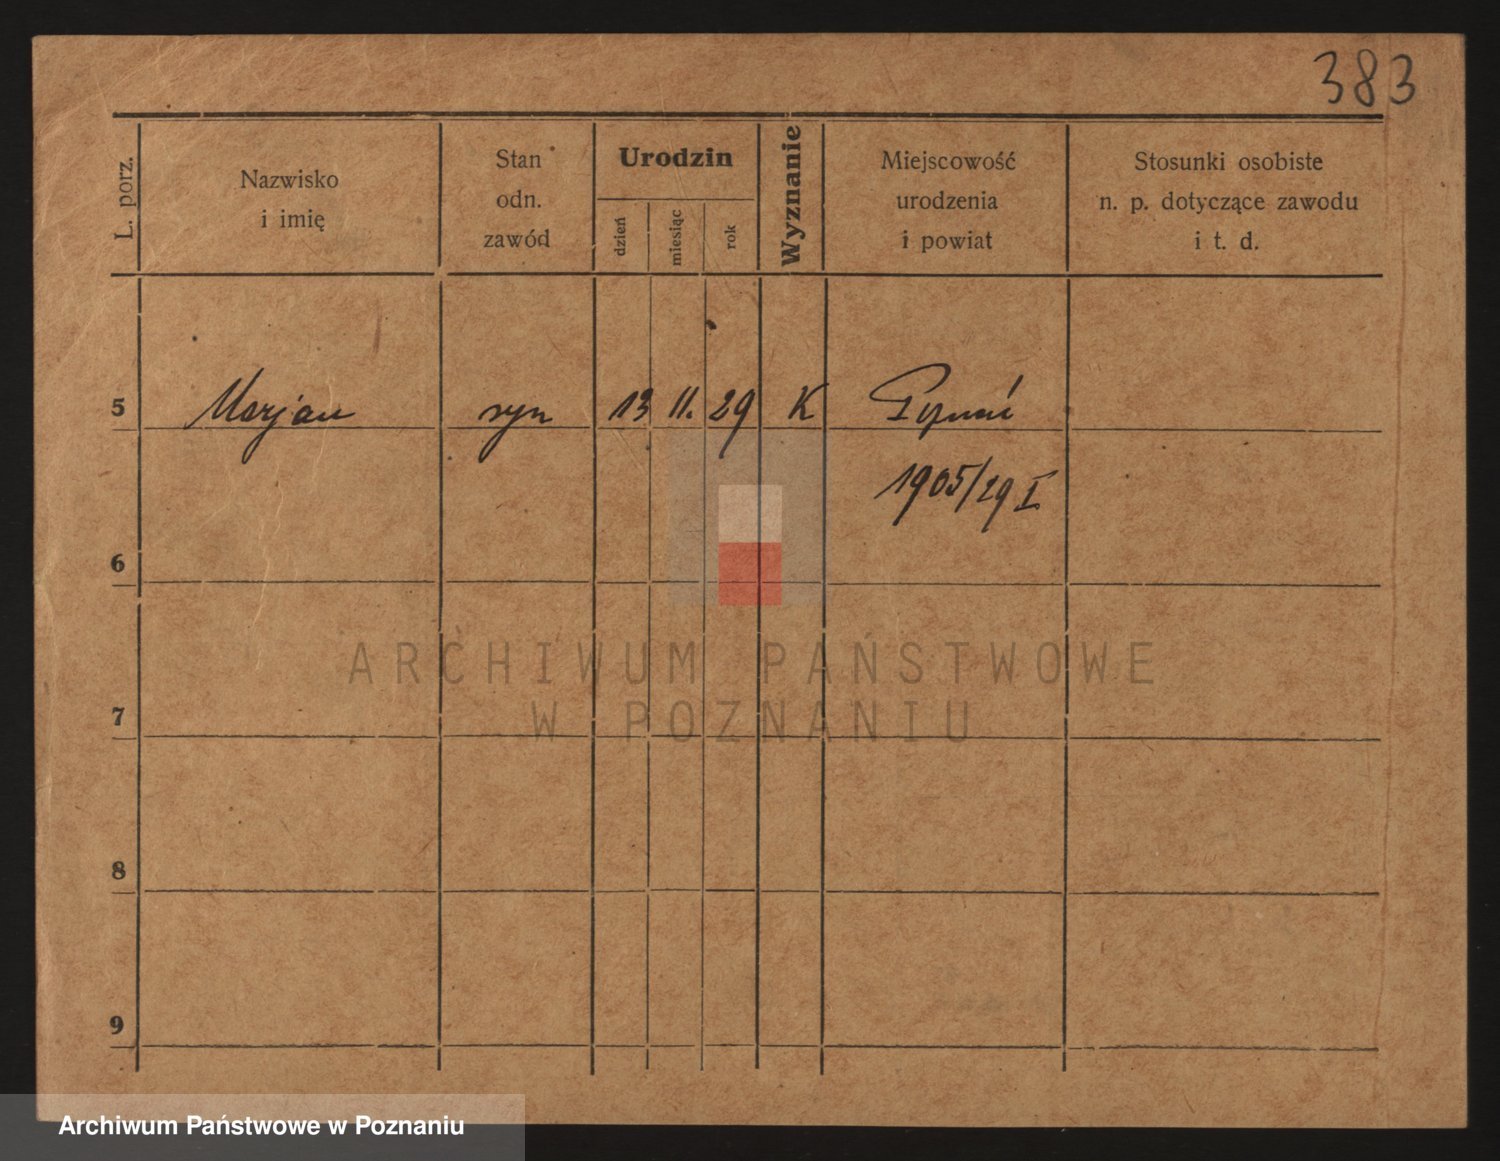 383
L. porz.
Nazwisko
i imię
Stan
odn.
zawód
Urodzin
dzień
miesiąc
rok
Wyznanie
Miejscowość
urodzenia
i powiat
Stosunki osobiste
n. p. dotyczące zawodu
i t. d.
5 Marjan syn 13 11. 29 K Poznań
1905/29 I
6
ARCHIWUM PAŃSTWOWE
W POZNANIU
7
8
9
Archiwum Państwowe w Poznaniu